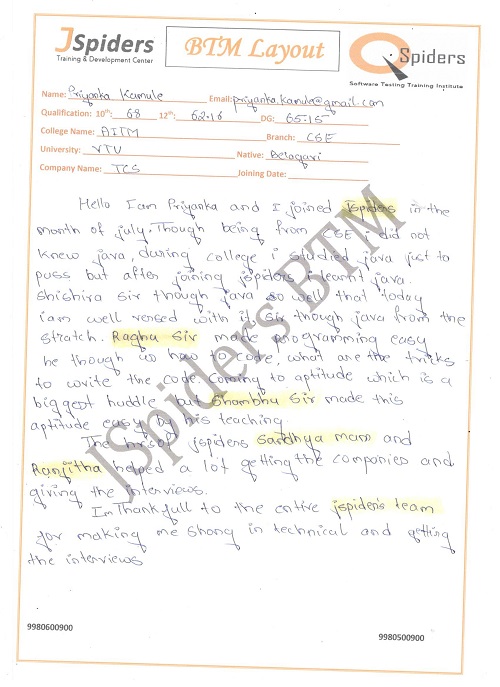 JSpiders
Training & Development Center
BTM Layout
QSpiders
Software Testing Training Institute
Name: Priyanka Kamule Email: priyanka.kamule@gmail.com
Qualification: 10th: 68 12th: 62.16 DG: 65.15
College Name: AITM Branch: CSE
University: VTU Native: Belagavi
Company Name: TCS Joining Date:
Hello I am Priyanka and I joined jspiders in the
month of july. Though being from CSE i did not
knew java, during college i studied java just to
puss but after joining jspiders i learnt java.
Shishira sir though java so well that today
iam well versed with it sir though java from the
stratch. Raghu Sir made programming easy
he though us how to code, what are the tricks
to write the code. Coming to aptitude which is a
biggest huddle but Shambhu Sir made this
aptitude easy by his teaching
The hrsof jspiders Sandhya mam and
Ranjitha helped a lot getting the companies and
giving the interviews.
Im Thankfull to the entire jspider's team
for making me strong in technical and getting
the interviews
JSpiders BTM
9980600900
9980500900